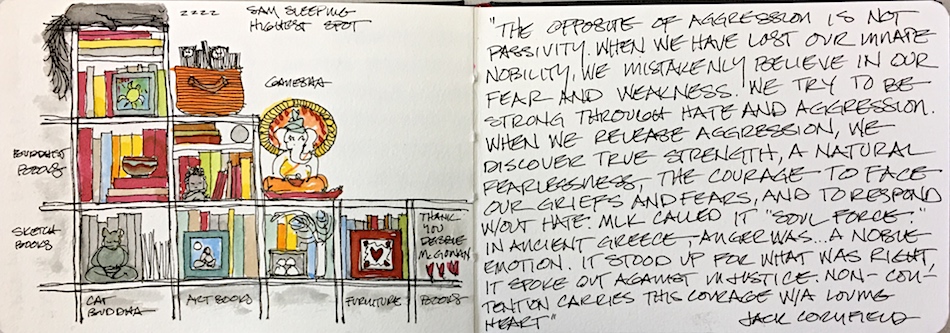 ZZZZ
SAM SLEEPING
HIGHEST SPOT
GANESHA
BUDDHIST
BOOKS
SKETCH
BOOKS
THANK
YOU
DEBBIE
McGOWAN
CAT
BUDDHA
ART BOOKS
FURNITURE
BOOKS
"THE OPPOSITE OF AGGRESSION IS NOT
PASSIVITY. WHEN WE HAVE LOST OUR INNATE
NOBILITY, WE MISTAKENLY BELIEVE IN OUR
FEAR AND WEAKNESS. WE TRY TO BE
STRONG THROUGH HATE AND AGGRESSION.
WHEN WE RELEASE AGGRESSION, WE
DISCOVER TRUE STRENGTH, A NATURAL
FEARLESSNESS, THE COURAGE TO FACE
OUR GRIEFS AND FEARS, AND TO RESPOND
W/OUT HATE. MLK CALLED IT "SOUL FORCE."
IN ANCIENT GREECE, ANGER WAS... A NOBLE
EMOTION. IT STOOD UP FOR WHAT WAS RIGHT,
IT SPOKE OUT AGAINST INJUSTICE. NON-CON-
TENTION CARRIES THIS COURAGE W/A LOVING
HEART"
JACK CORNFIELD